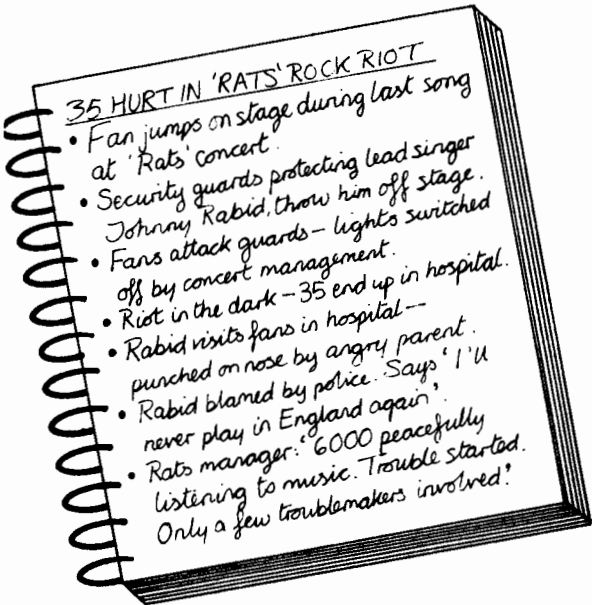 35 HURT IN 'RATS' ROCK RIOT
• Fan jumps on stage during last song
at 'Rats' concert.
• Security guards protecting lead singer
Johnny Rabid, throw him off stage.
• Fans attack guards – lights switched
off by concert management.
• Riot in the dark – 35 end up in hospital.
• Rabid visits fans in hospital --
punched on nose by angry parent.
• Rabid blamed by police. Says 'I'll
never play in England again'.
• Rats manager: '6000 peacefully
listening to music. Trouble started.
Only a few troublemakers involved.'